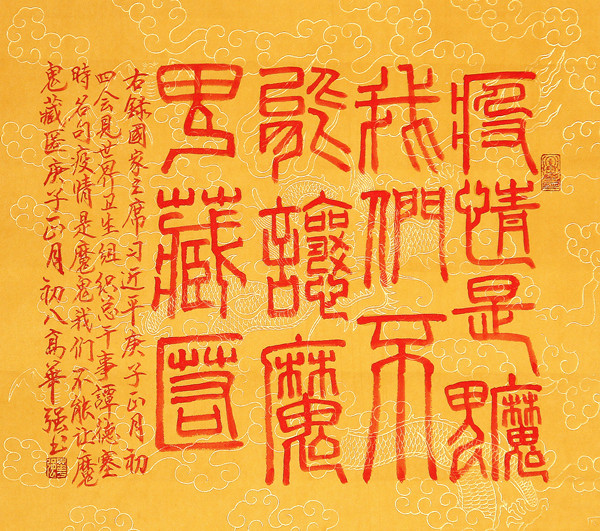 疫情是魔鬼
我們不
能讓魔
鬼藏匿
右録國家主席习近平庚子正月初
四会見世界卫生组织总干事譚德塞
時名句疫情是魔鬼我们不能让魔
鬼藏匿庚子正月初八高華强书